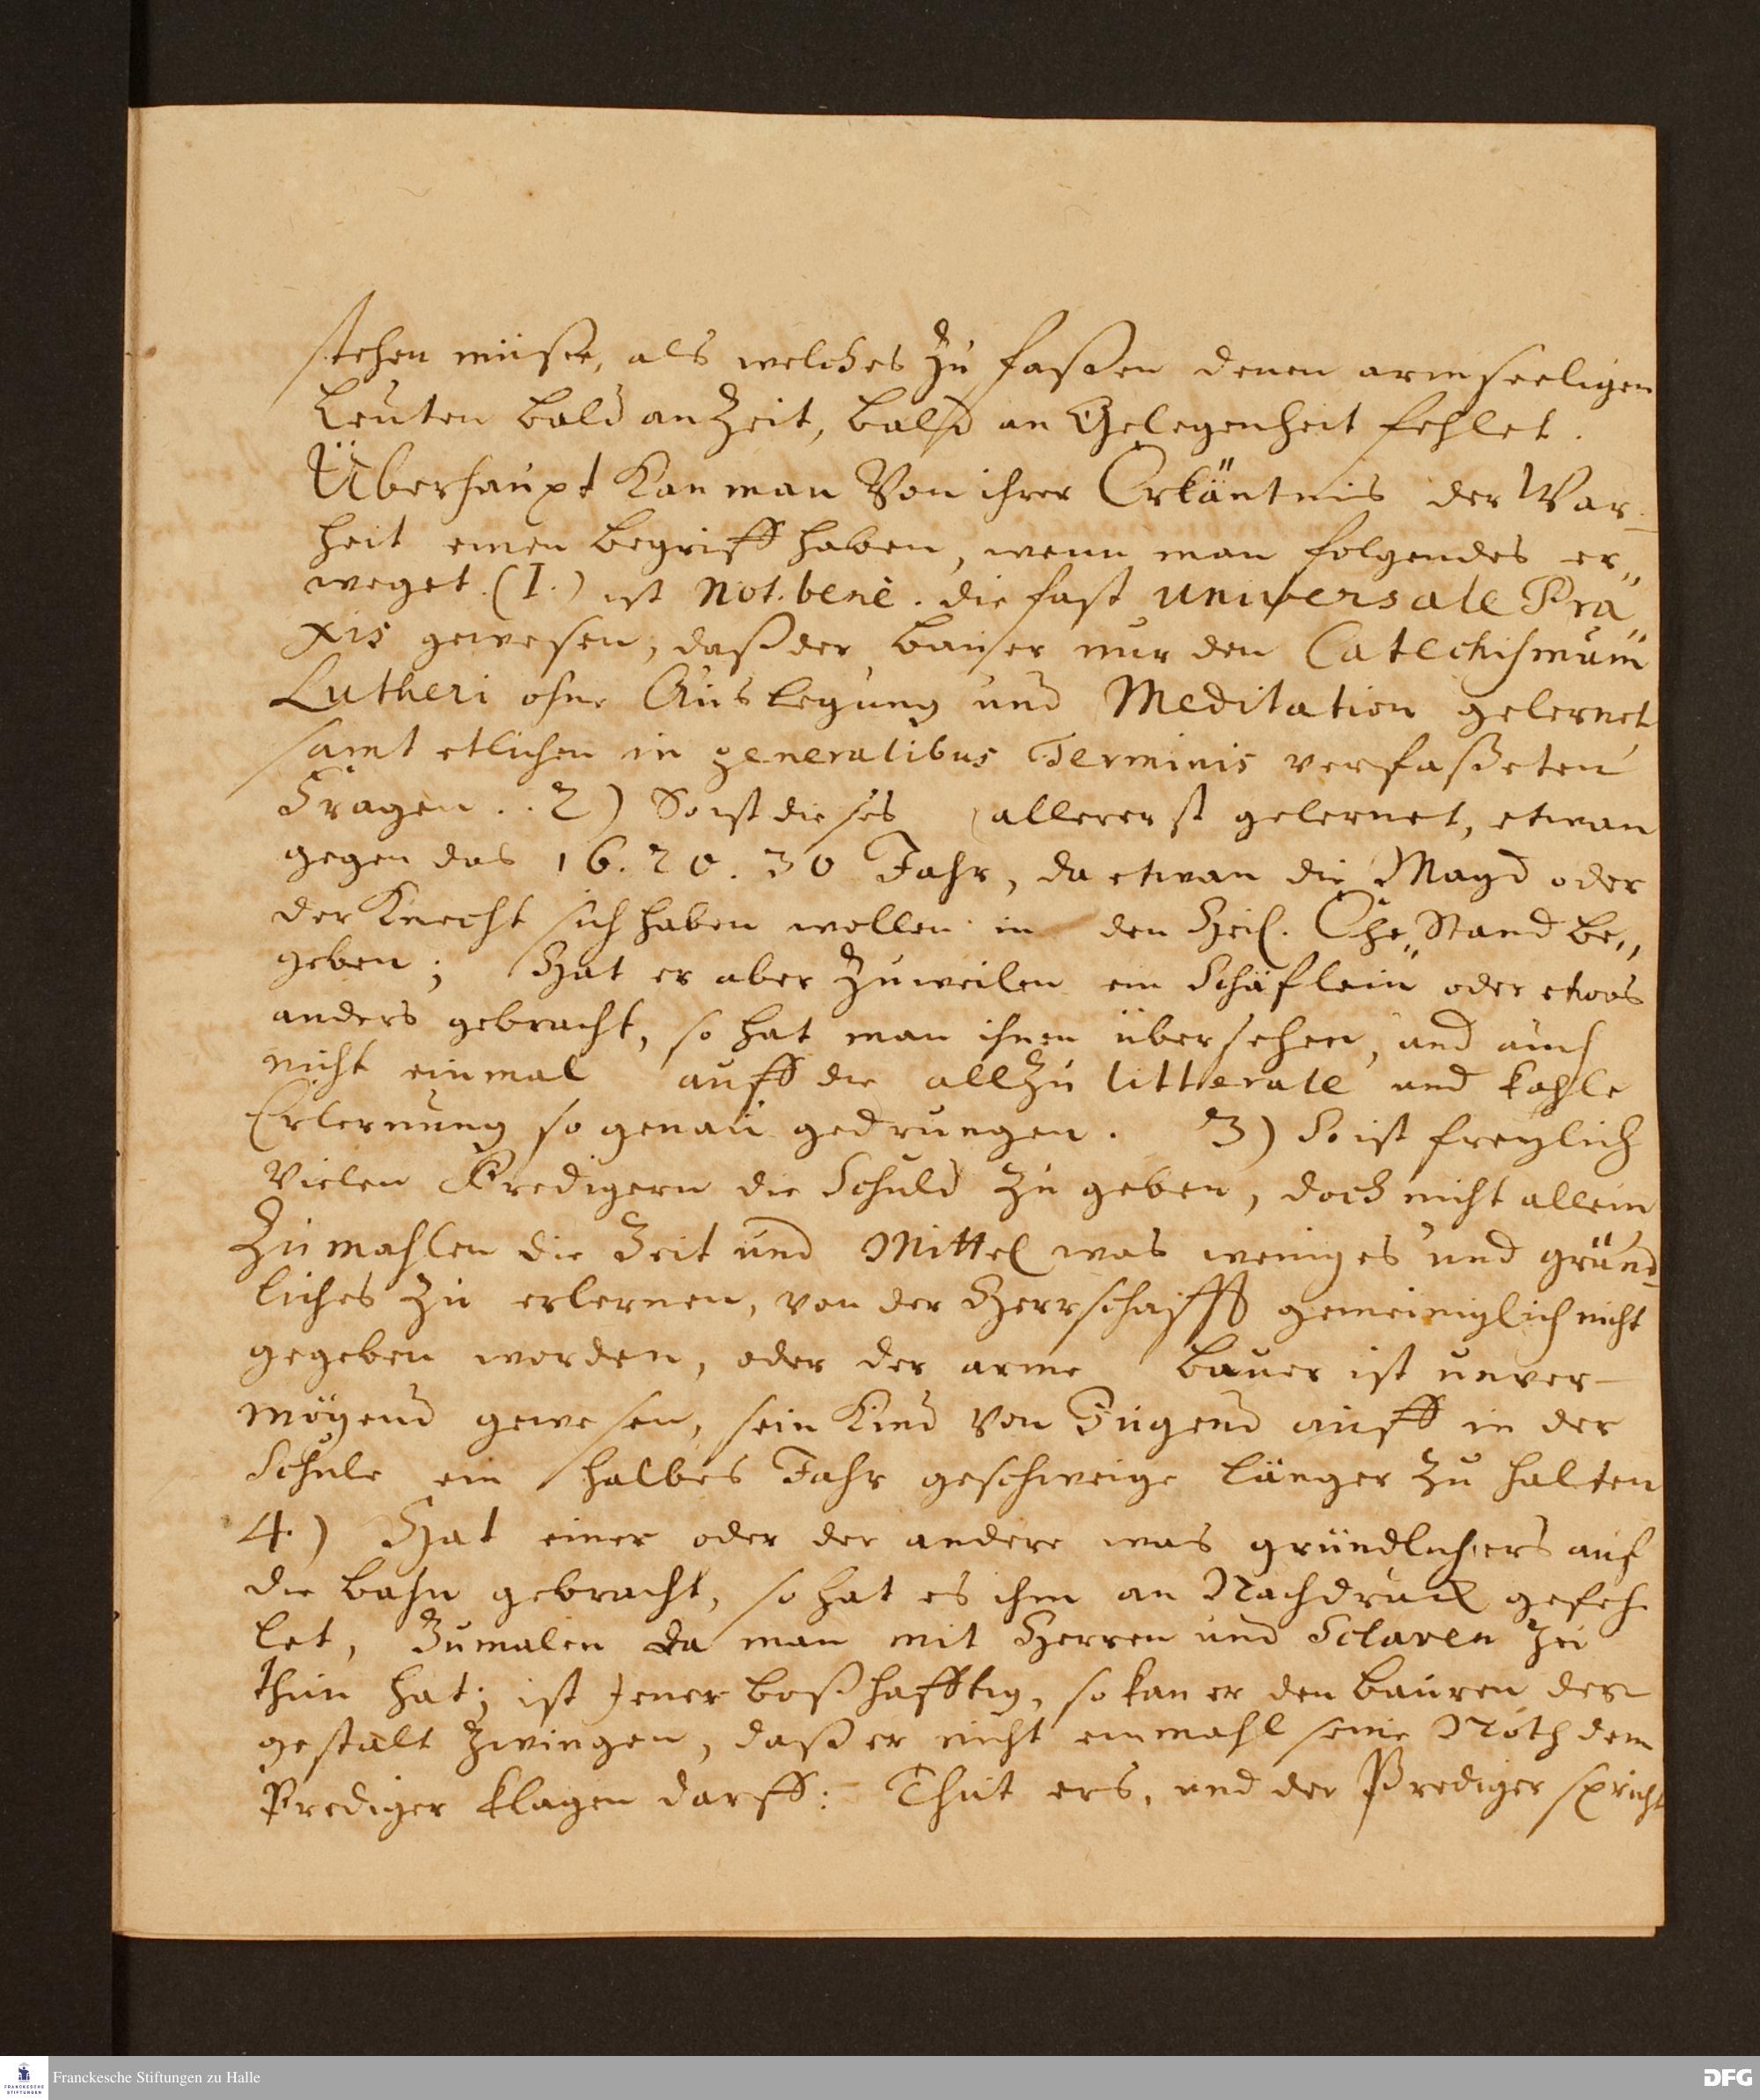 stehen müße, als welches zu faßen denen armseeligen
Leuten bald an Zeit, bald an Gelegenheit fehlet.
Überhaupt kan man von ihrer Erkäntnis der War-
heit einen begriff haben, wenn man folgendes er„
weget. (I.) ist Not. bene. die fast universale Pra„
xis gewesen, daß der bauer nur den Catechismum
Lutheri ohne Auslegung und Meditation gelernet
samt etlichen in generalibus Terminis verfaßeten
Fragen.. 2) So ist dieses allererst gelernet, etwan
gegen das 16. 20. 30 Jahr, da etwan die Magd oder
der Knecht sich haben wollen in den Heil. Ehe„Stand be„
geben; Hat er aber zuweilen ein Schäflein oder etwas
anders gebracht, so hat man ihnen übersehen, und auch
nicht einmal auff die allzu litterale und kahle
Erlernung so genau gedrungen. 3) So ist freylich
vielen Predigern die Schuld zu geben, doch nicht allein
Zumahlen die Zeit und Mittel was weniges und gründ-
liches zu erlernen, von der Herrschafft gemeiniglich nicht
gegeben worden, oder der arme bauer ist unver-
mögend gewesen, sein Kind von Jugend auff in der
Schule ein halbes Jahr geschweige länger zu halten
4.) Hat einer oder der andere was gründlichers auf
die bahn gebracht, so hat es ihm an Nachdruck gefeh-
let, Zumalen da man mit Herren und Sclaven zu
thun hat; ist Jener boßhafftig, so kan er den bauren der-
gestalt zwingen, daß er nicht einmahl seine Noth dem
Prediger klagen darff: Thut ers, und der Prediger spricht
Franckesche Stiftungen zu Halle
FRANCKESCHE
STIFTUNGEN
DFG